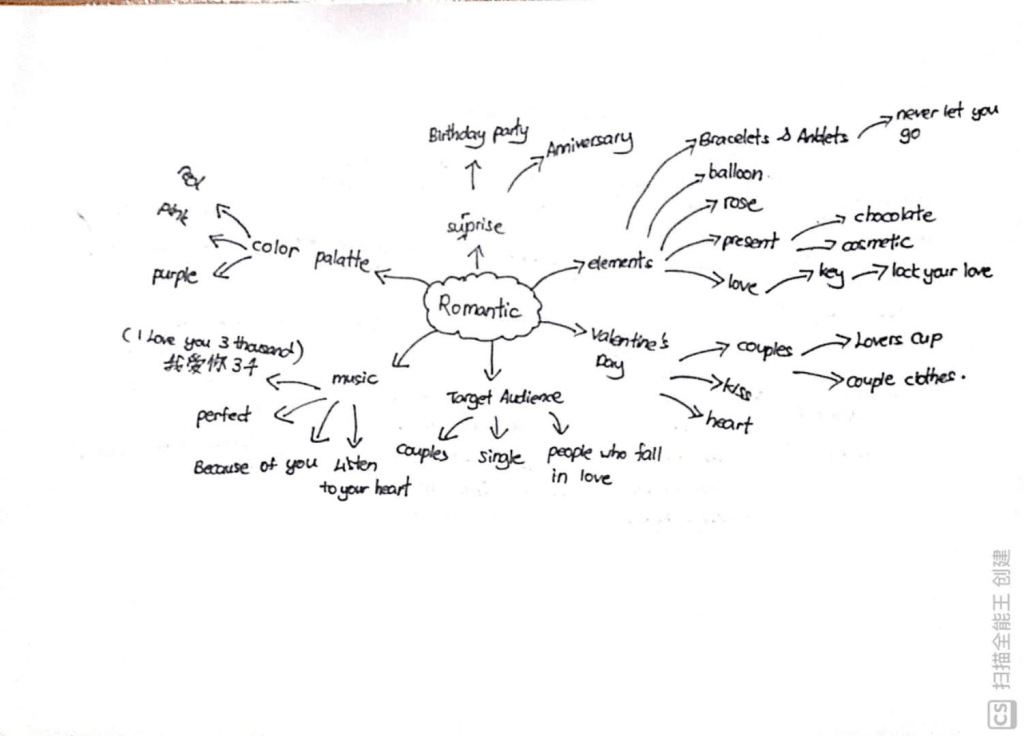 Birthday party
Anniversary
suprise
Bracelets & Anklets
never let you
go
balloon
rose
present
chocolate
cosmetic
elements
love
key
lock your love
Red
pink
purple
color palatte
Romantic
Valentine's
Day
couples
Lovers cup
couple clothes.
kiss
heart
(I Love you 3 thousand)
我爱你3千
music
perfect
Because of you
Listen
to your heart
Target Audience
couples
single
people who fall
in love
CS 扫描全能王 创建